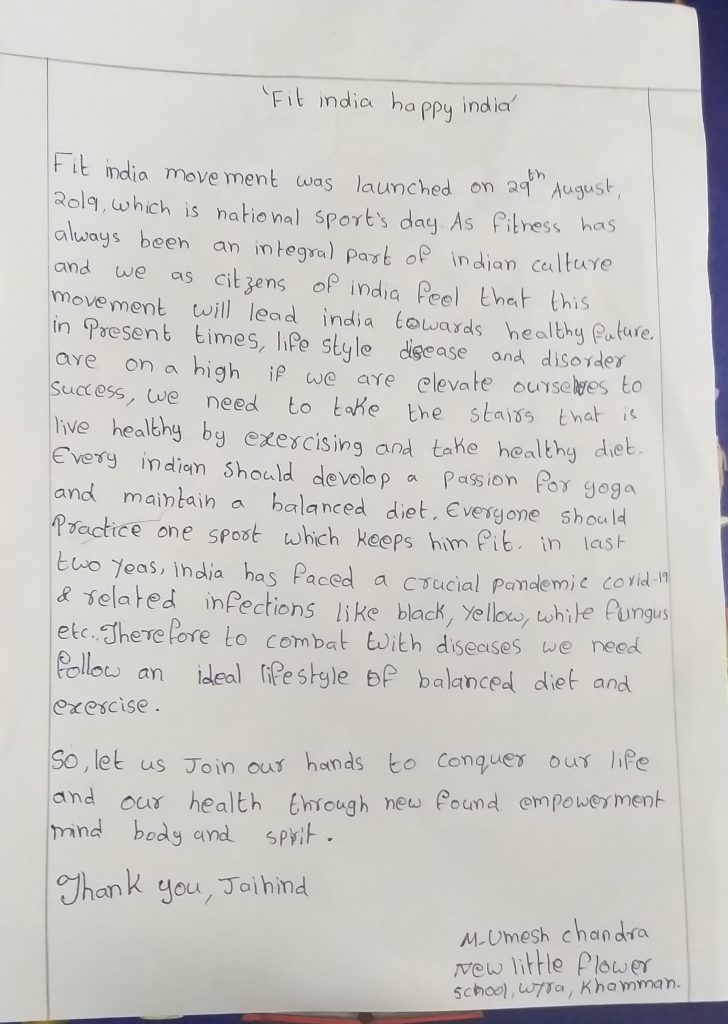 'Fit india happy india'
Fit india movement was launched on 29th August,
2019, which is national sport's day. As fitness has
always been an integral part of indian culture
and we as citzens of india feel that this
movement will lead india towards healthy future.
in Present times, life style disease and disorder
are on a high if we are elevate ourselves to
success, we need to take the stairs that is
live healthy by exercising and take healthy diet.
Every indian should devolop a passion for yoga
and maintain a balanced diet. Everyone should
Practice one sport which keeps him fit. in last
two yeas, india has faced a crucial pandemic covid-19
& related infections like black, yellow, white fungus
etc.. Therefore to combat with diseases we need
follow an ideal lifestyle of balanced diet and
exercise.
So, let us Join our hands to conquer our life
and our health through new found empowerment
mind body and spirit.
Thank you, Jaihind
M-Umesh chandra
New little flower
school, wyra, Khammam.